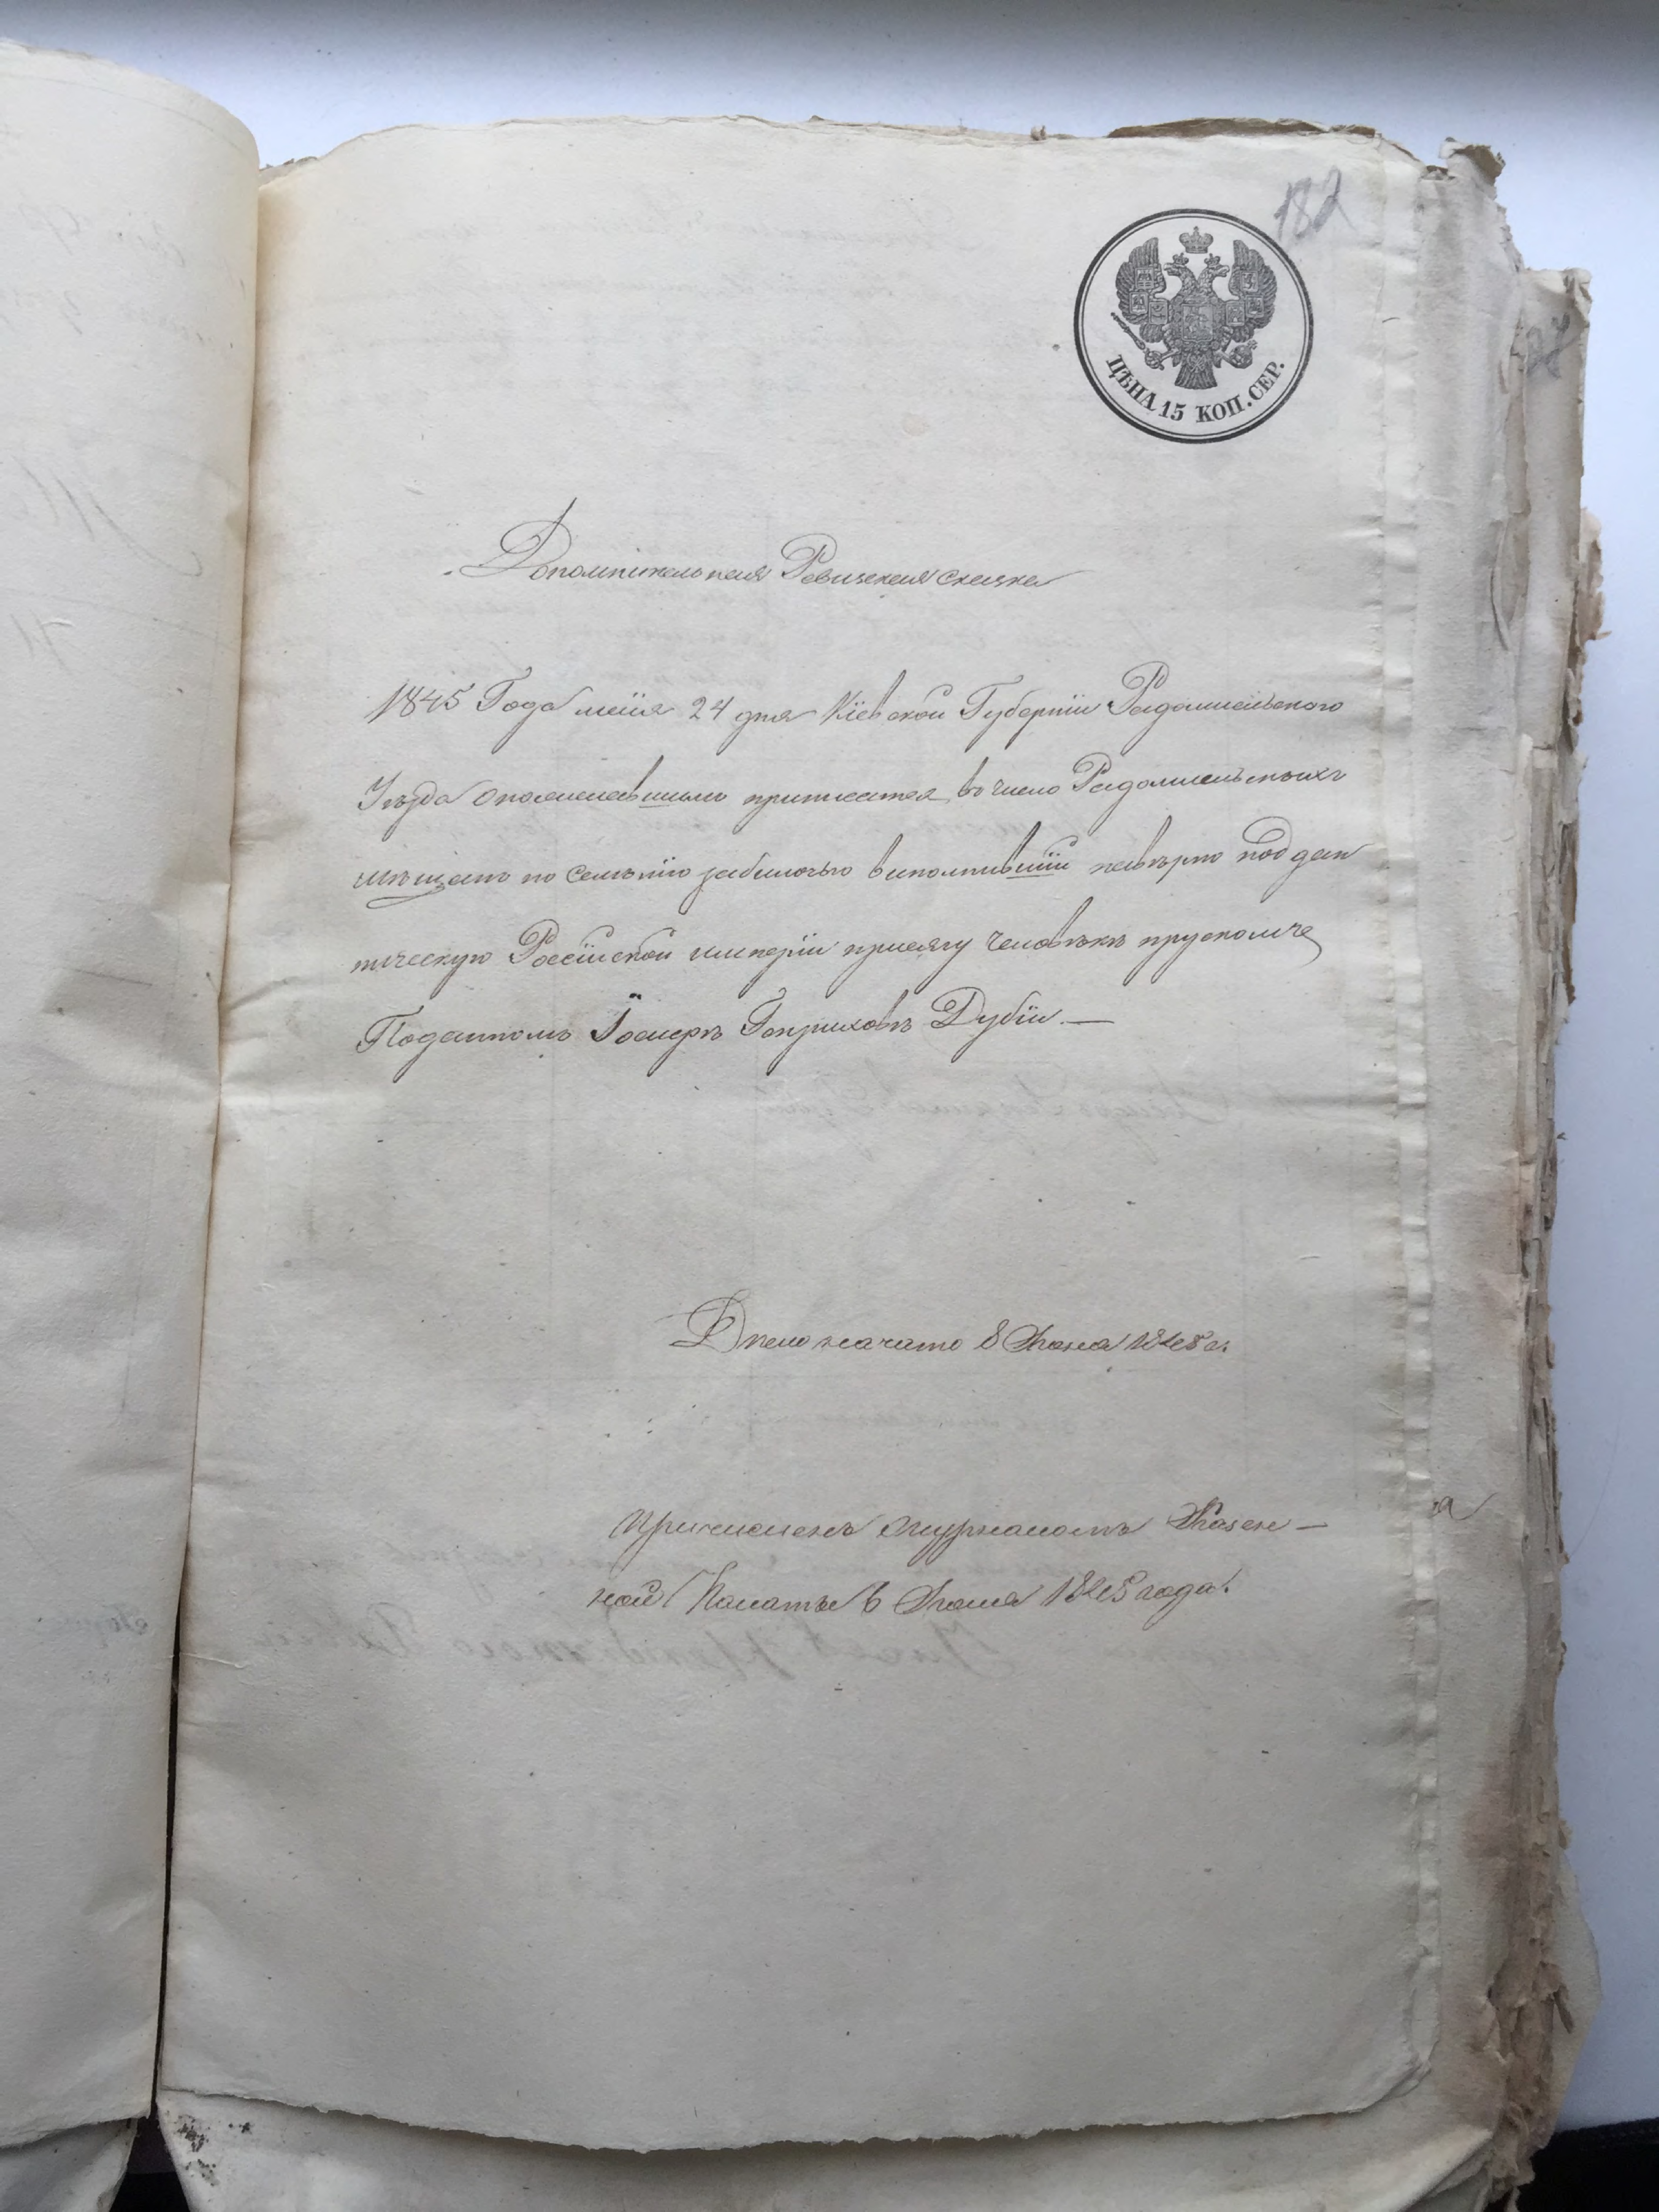 182
ЦѢНА 15 КОП. СЕР.
Дополнительная Ревизская сказка
1845 Года маія 24 дня Кіевской Губерніи Радомисльского
Уѣзда о пожелавшимъ приписатся въ число Радомисльскихъ
мѣщанъ по выполнившій на вѣрно поддан
ническую Россійской имперіи присягу человѣкъ пруско
Поданномъ Іосифѣ Генриховѣ Дубіи. —
Дѣло начато 8 1848 г.
Причисленъ журналомъ Казен-
ной Палаты 6 1848 года.